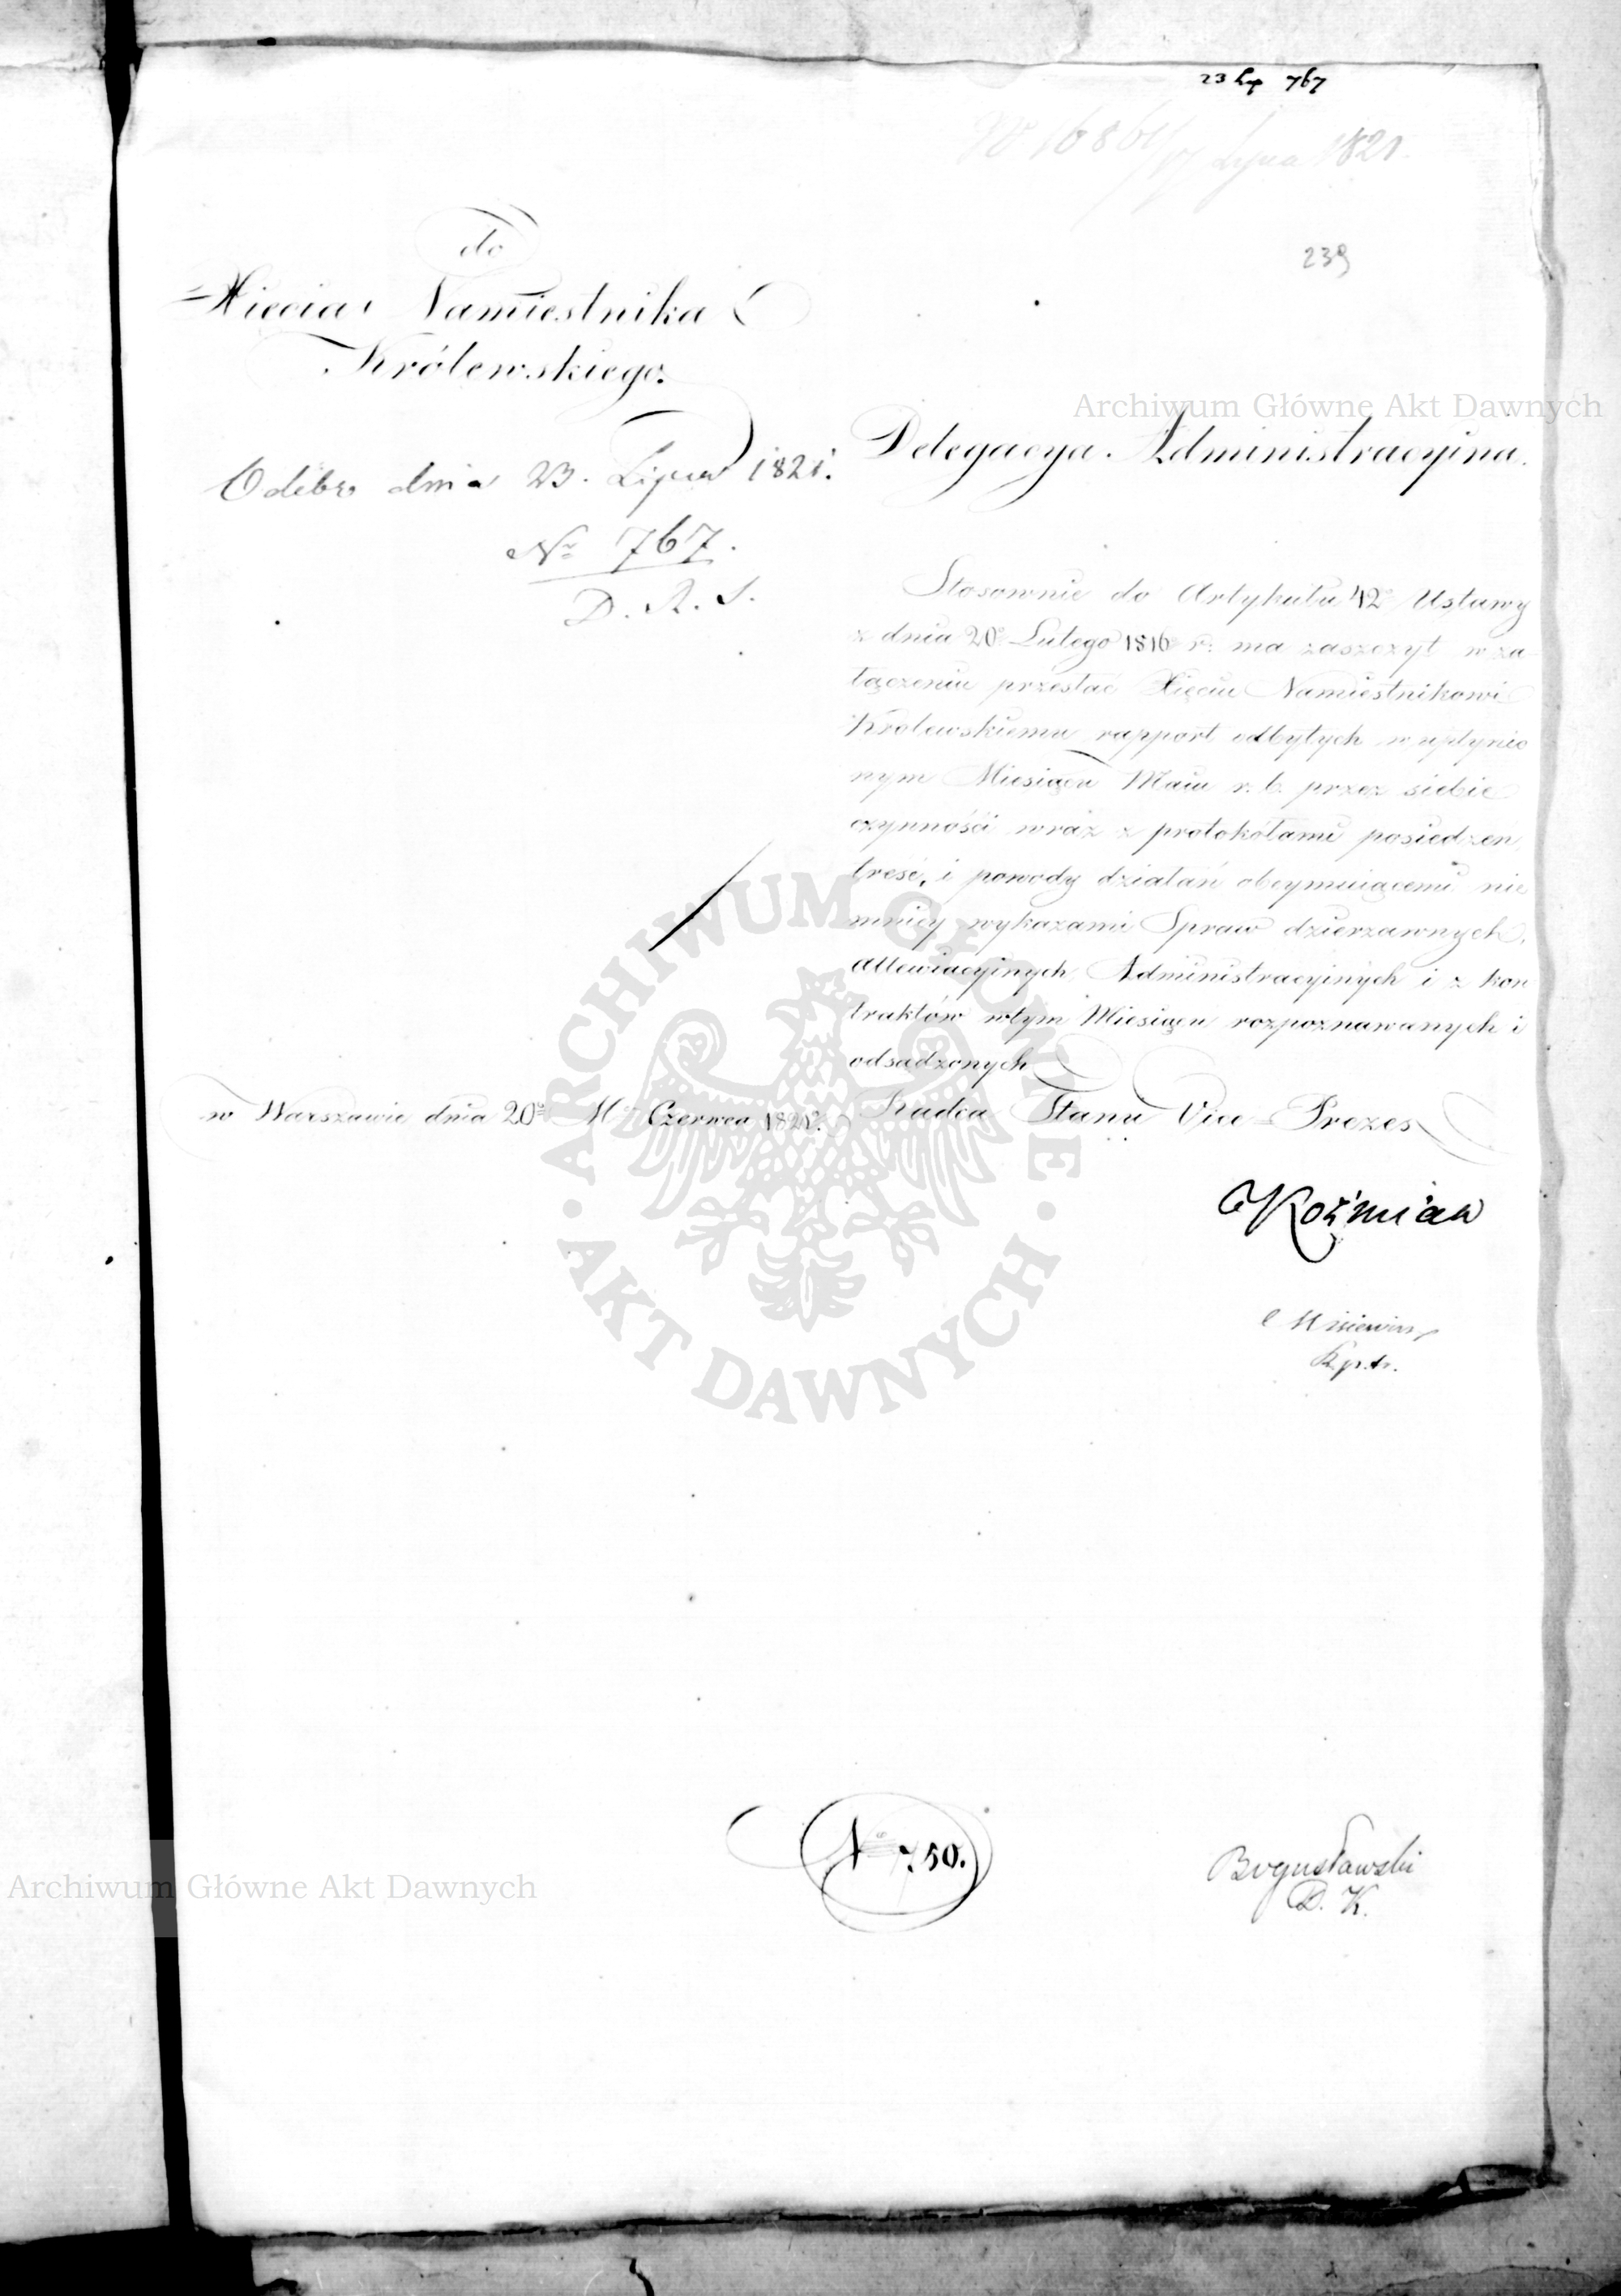 23 Lip 767
Lipca 1821.
239
do
Xięcia Namiestnika
Królewskiego.
Archiwum Główne Akt Dawnych
Delegacya Administracyina.
Odebr. dnia 23. Lipca 1821.
Nr 767.
D. A. S.
Stosownie do Artykułu 42º Ustawy
z dnia 20º Lutego 1816 r: ma zaszczyt w za
łączeniu przesłać Xięciu Namiestnikowi
Królewskiemu rapport odbytych w upłynio
nym Miesiącu Maiu r. b. przez siebie
czynności wraz z protokółami posiedzeń,
treść, i powody działań obeymuiącemi nie
mniey wykazami Spraw dzierzawnych,
allewiacyinych, Administracyinych i z kon
traktów wtym Miesiącu rozpoznawanych i
odsadzonych
w Warszawie dnia 20º Mca Czerwca 1821 r.
Radca Stanu Vice-Prezes
Koźmian
ARCHIWUM GŁÓWNE
AKT DAWNYCH
Nº 750.
Bogusławski
D. K.
Archiwum Główne Akt Dawnych